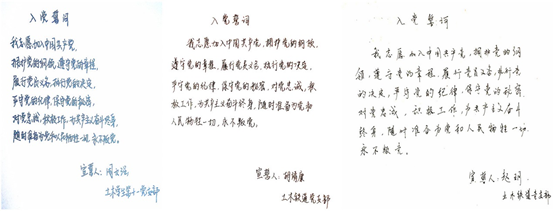 入党誓词
我志愿加入中国共产党,
拥护党的纲领,遵守党的章程,
履行党员义务,执行党的决定,
严守党的纪律,保守党的秘密,
对党忠诚,积极工作,为共产主义奋斗终身,
随时准备为党和人民牺牲一切,永不叛党。
宣誓人:
土木学生第十一党支部
入党誓词
我志愿加入中国共产党,拥护党的纲领,
遵守党的章程,履行党员义务,执行党的决定,
严守党的纪律,保守党的秘密,对党忠诚,积
极工作,为共产主义奋斗终身,随时准备为党和
人民牺牲一切,永不叛党。
宣誓人:
土木
党支部
入党誓词
我志愿加入中国共产党,拥护党的纲
领,遵守党的章程,履行党员义务,执行党
的决定,严守党的纪律,保守党的秘密
对党忠诚,积极工作,为共产主义奋斗
终身,随时准备为党和人民牺牲一切
永不叛党。
宣誓人:赵
土木